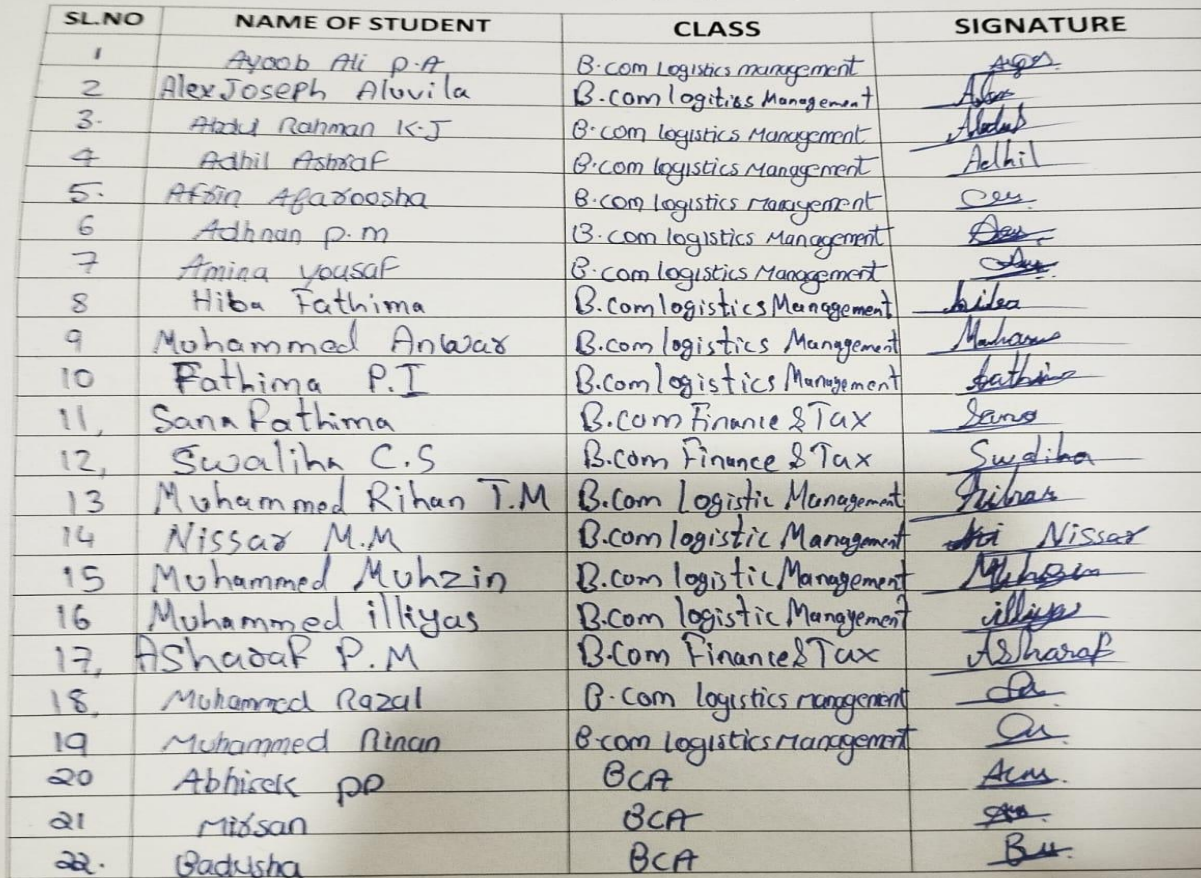 SL.NO NAME OF STUDENT CLASS SIGNATURE
1 Ayoob Ali P.A B.com Logistics management
2 Alex Joseph Aluvila B.com logitiss Management Alex
3. Abdul Rahman K.J B.com logistics Management Abdul
4 Adhil Ashraf B.com logistics Management Adhil
5. Afrin Afaroosha B.com logistics Management
6 Adhnan P.m B.com logistics Management
7 Amina yousaf B.com logistics Management
8 Hiba Fathima B.com logistics Management hiba
9 Mohammed Anwar B.com logistics Management
10 Fathima P.I B.com logistics Management fathima
11, Sana Fathima B.com Finance & Tax Sana
12, Swaliha C.S B.com Finance & Tax Swaliha
13 Muhammed Rihan T.M B.Com Logistic Management
14 Nissar M.M B.com logistic Management Nissar
15 Muhammed Muhzin B.com logistic Management
16 Muhammed illiyas B.com logistic Management illiyas
17, ASharaf P.M B.Com Finance & Tax ASharaf
18, Muhammed Razal B.com logistics management
19 Muhammed Rinan B.com logistics Management
20 Abhisek PP BCA
21 Mirsan BCA
22. Badusha BCA